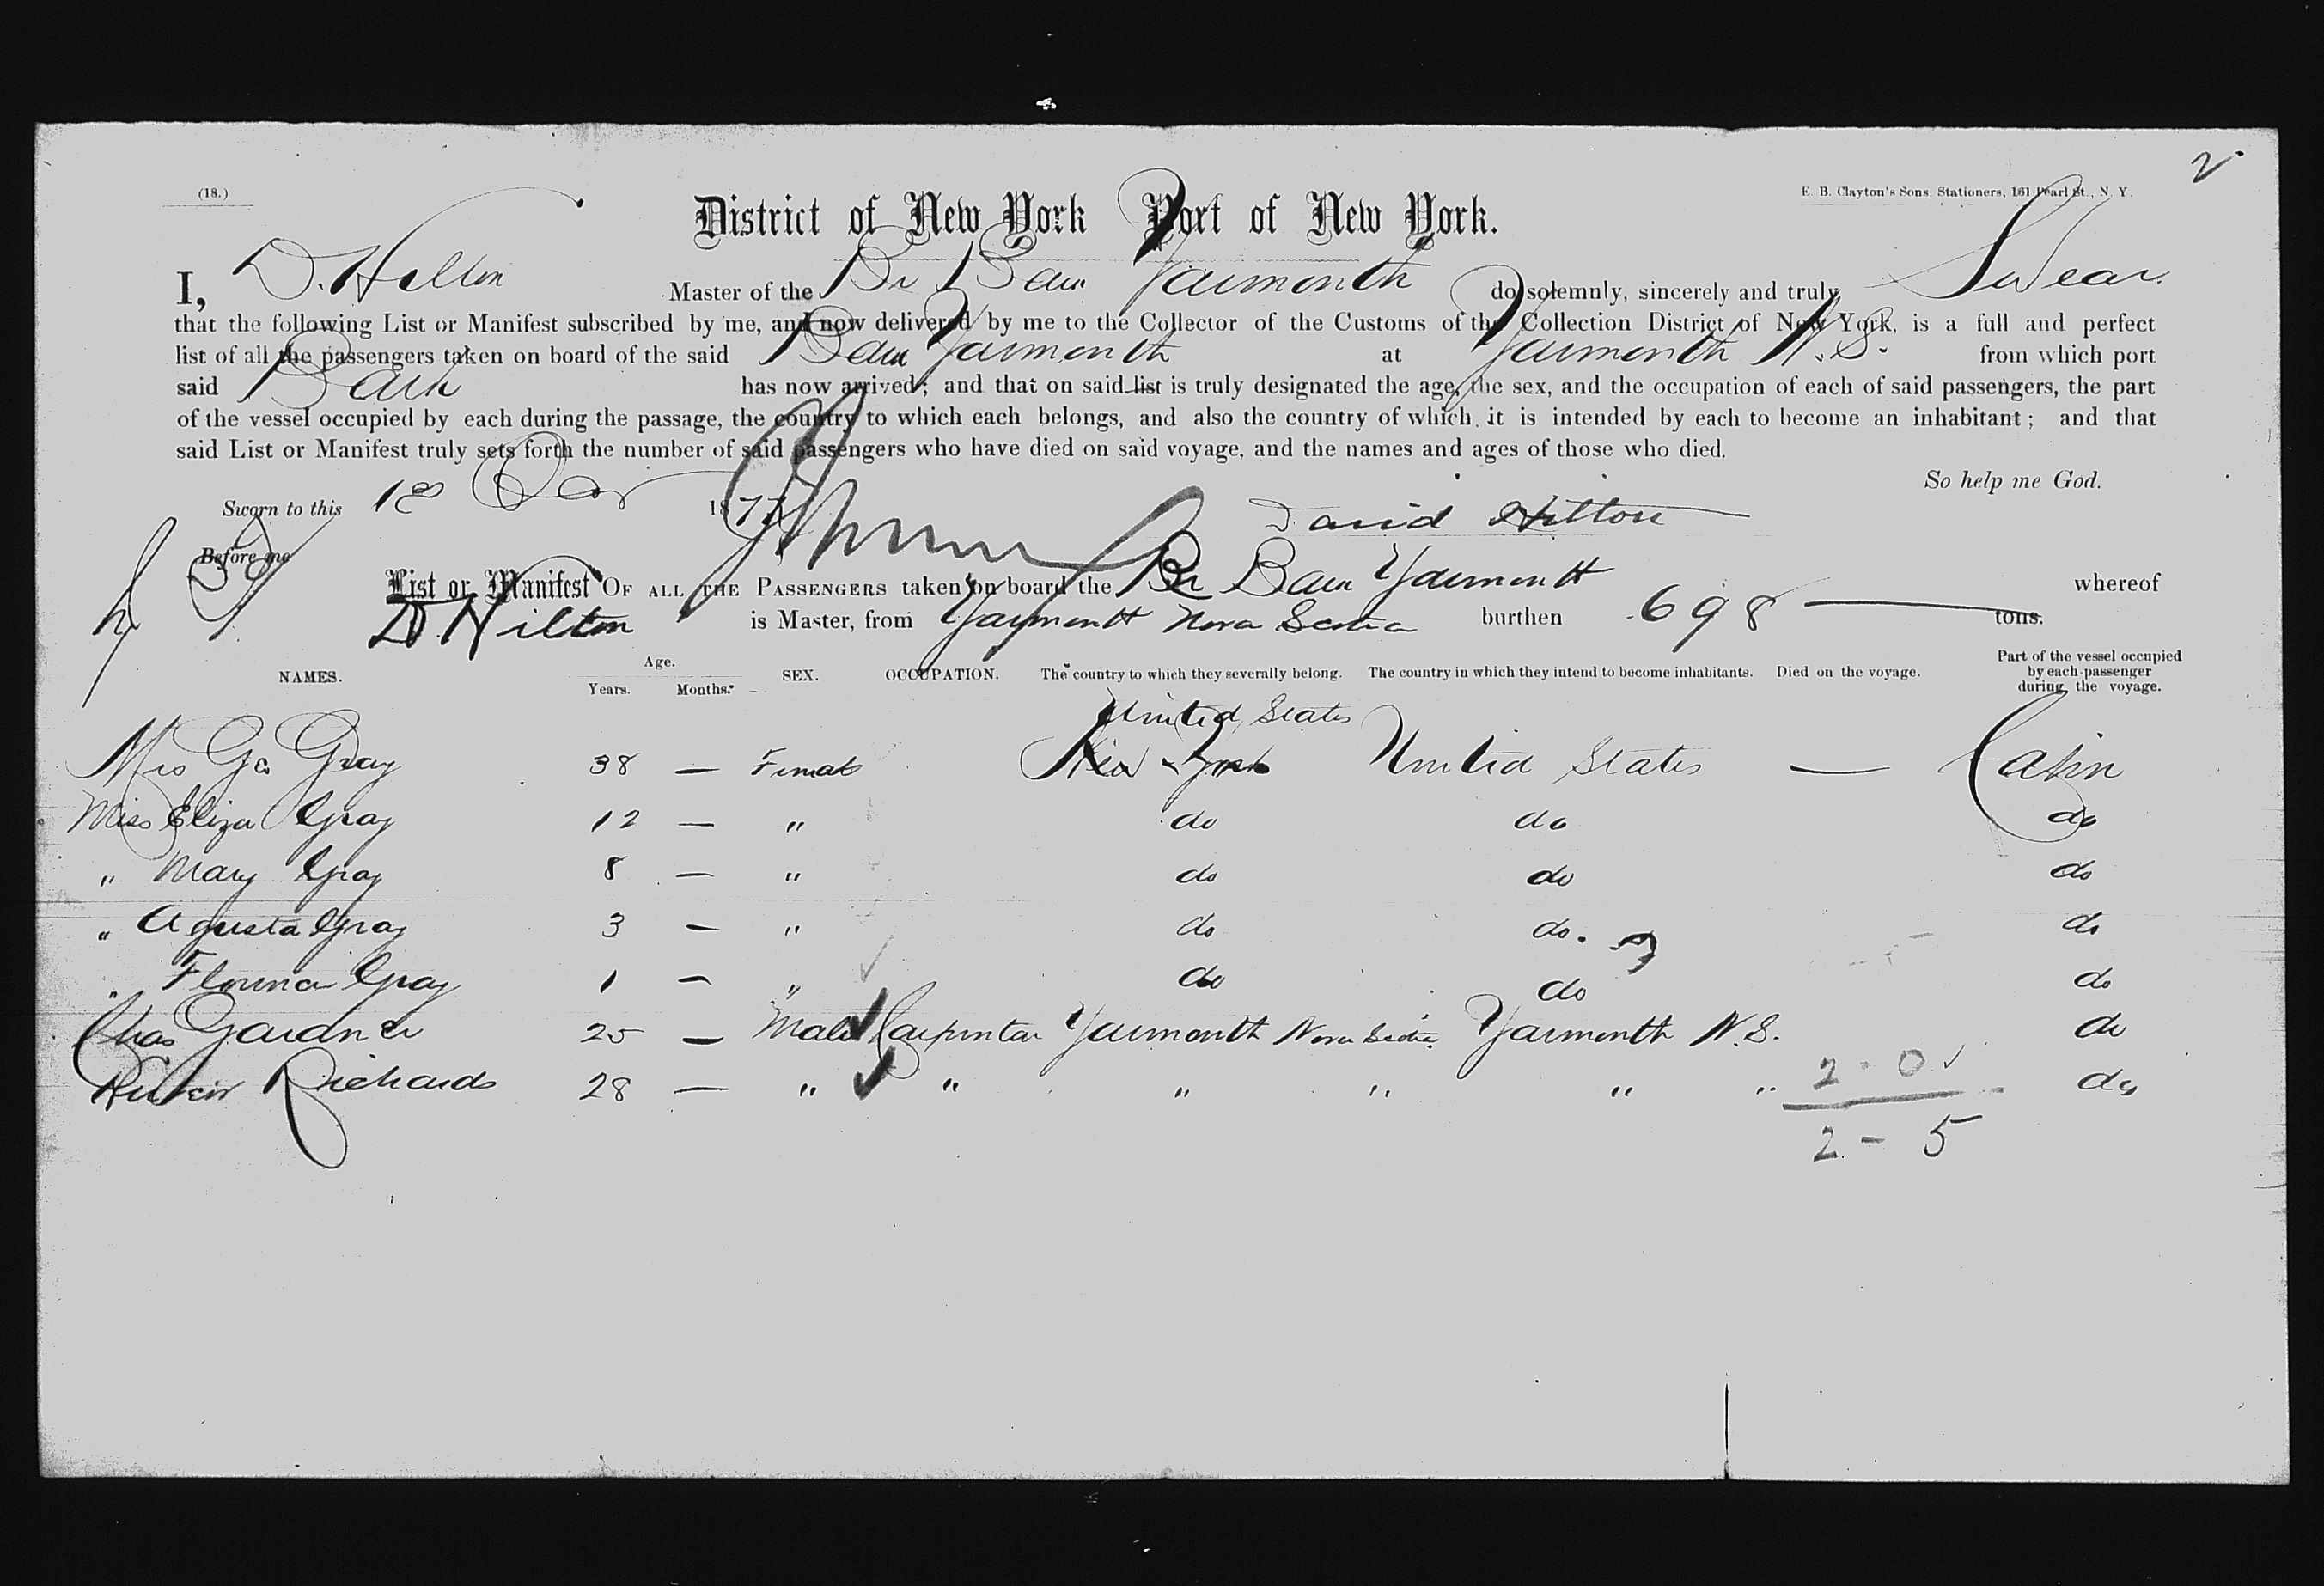 2
(18.)
E. B. Clayton's Sons, Stationers, 161 Pearl St., N. Y.
District of New York Port of New York.
I, D. Hilton Master of the Br Bark Yarmouth do solemnly, sincerely and truly Swear
that the following List or Manifest subscribed by me, and now delivered by me to the Collector of the Customs of the Collection District of New York, is a full and perfect
list of all the passengers taken on board of the said Bark Yarmouth at Yarmouth N.S. from which port
said Bark has now arrived; and that on said list is truly designated the age, the sex, and the occupation of each of said passengers, the part
of the vessel occupied by each during the passage, the country to which each belongs, and also the country of which it is intended by each to become an inhabitant; and that
said List or Manifest truly sets forth the number of said passengers who have died on said voyage, and the names and ages of those who died.
So help me God.
Sworn to this 18 187
David Hilton
Before me
List or Manifest OF ALL THE PASSENGERS taken on board the Br Bark Yarmouth whereof
D. Hilton is Master, from Yarmouth Nova Scotia burthen 698 tons.
NAMES. Age. Years. Months. SEX. OCCUPATION. The country to which they severally belong. The country in which they intend to become inhabitants. Died on the voyage. Part of the vessel occupied by each passenger during the voyage.
United States
Mrs Go Gray 38 — Female New York United States — Cabin
Miss Eliza Gray 12 — " do do do
" Mary Gray 8 — " do do do
" Agusta Gray 3 — " do do. do
" Florence Gray 1 — " do do do
Chas Gardner 25 — Male Carpenter Yarmouth Nova Scotia Yarmouth N.S. do
Richards 28 — " " " " " " do
2 - 0
2 - 5